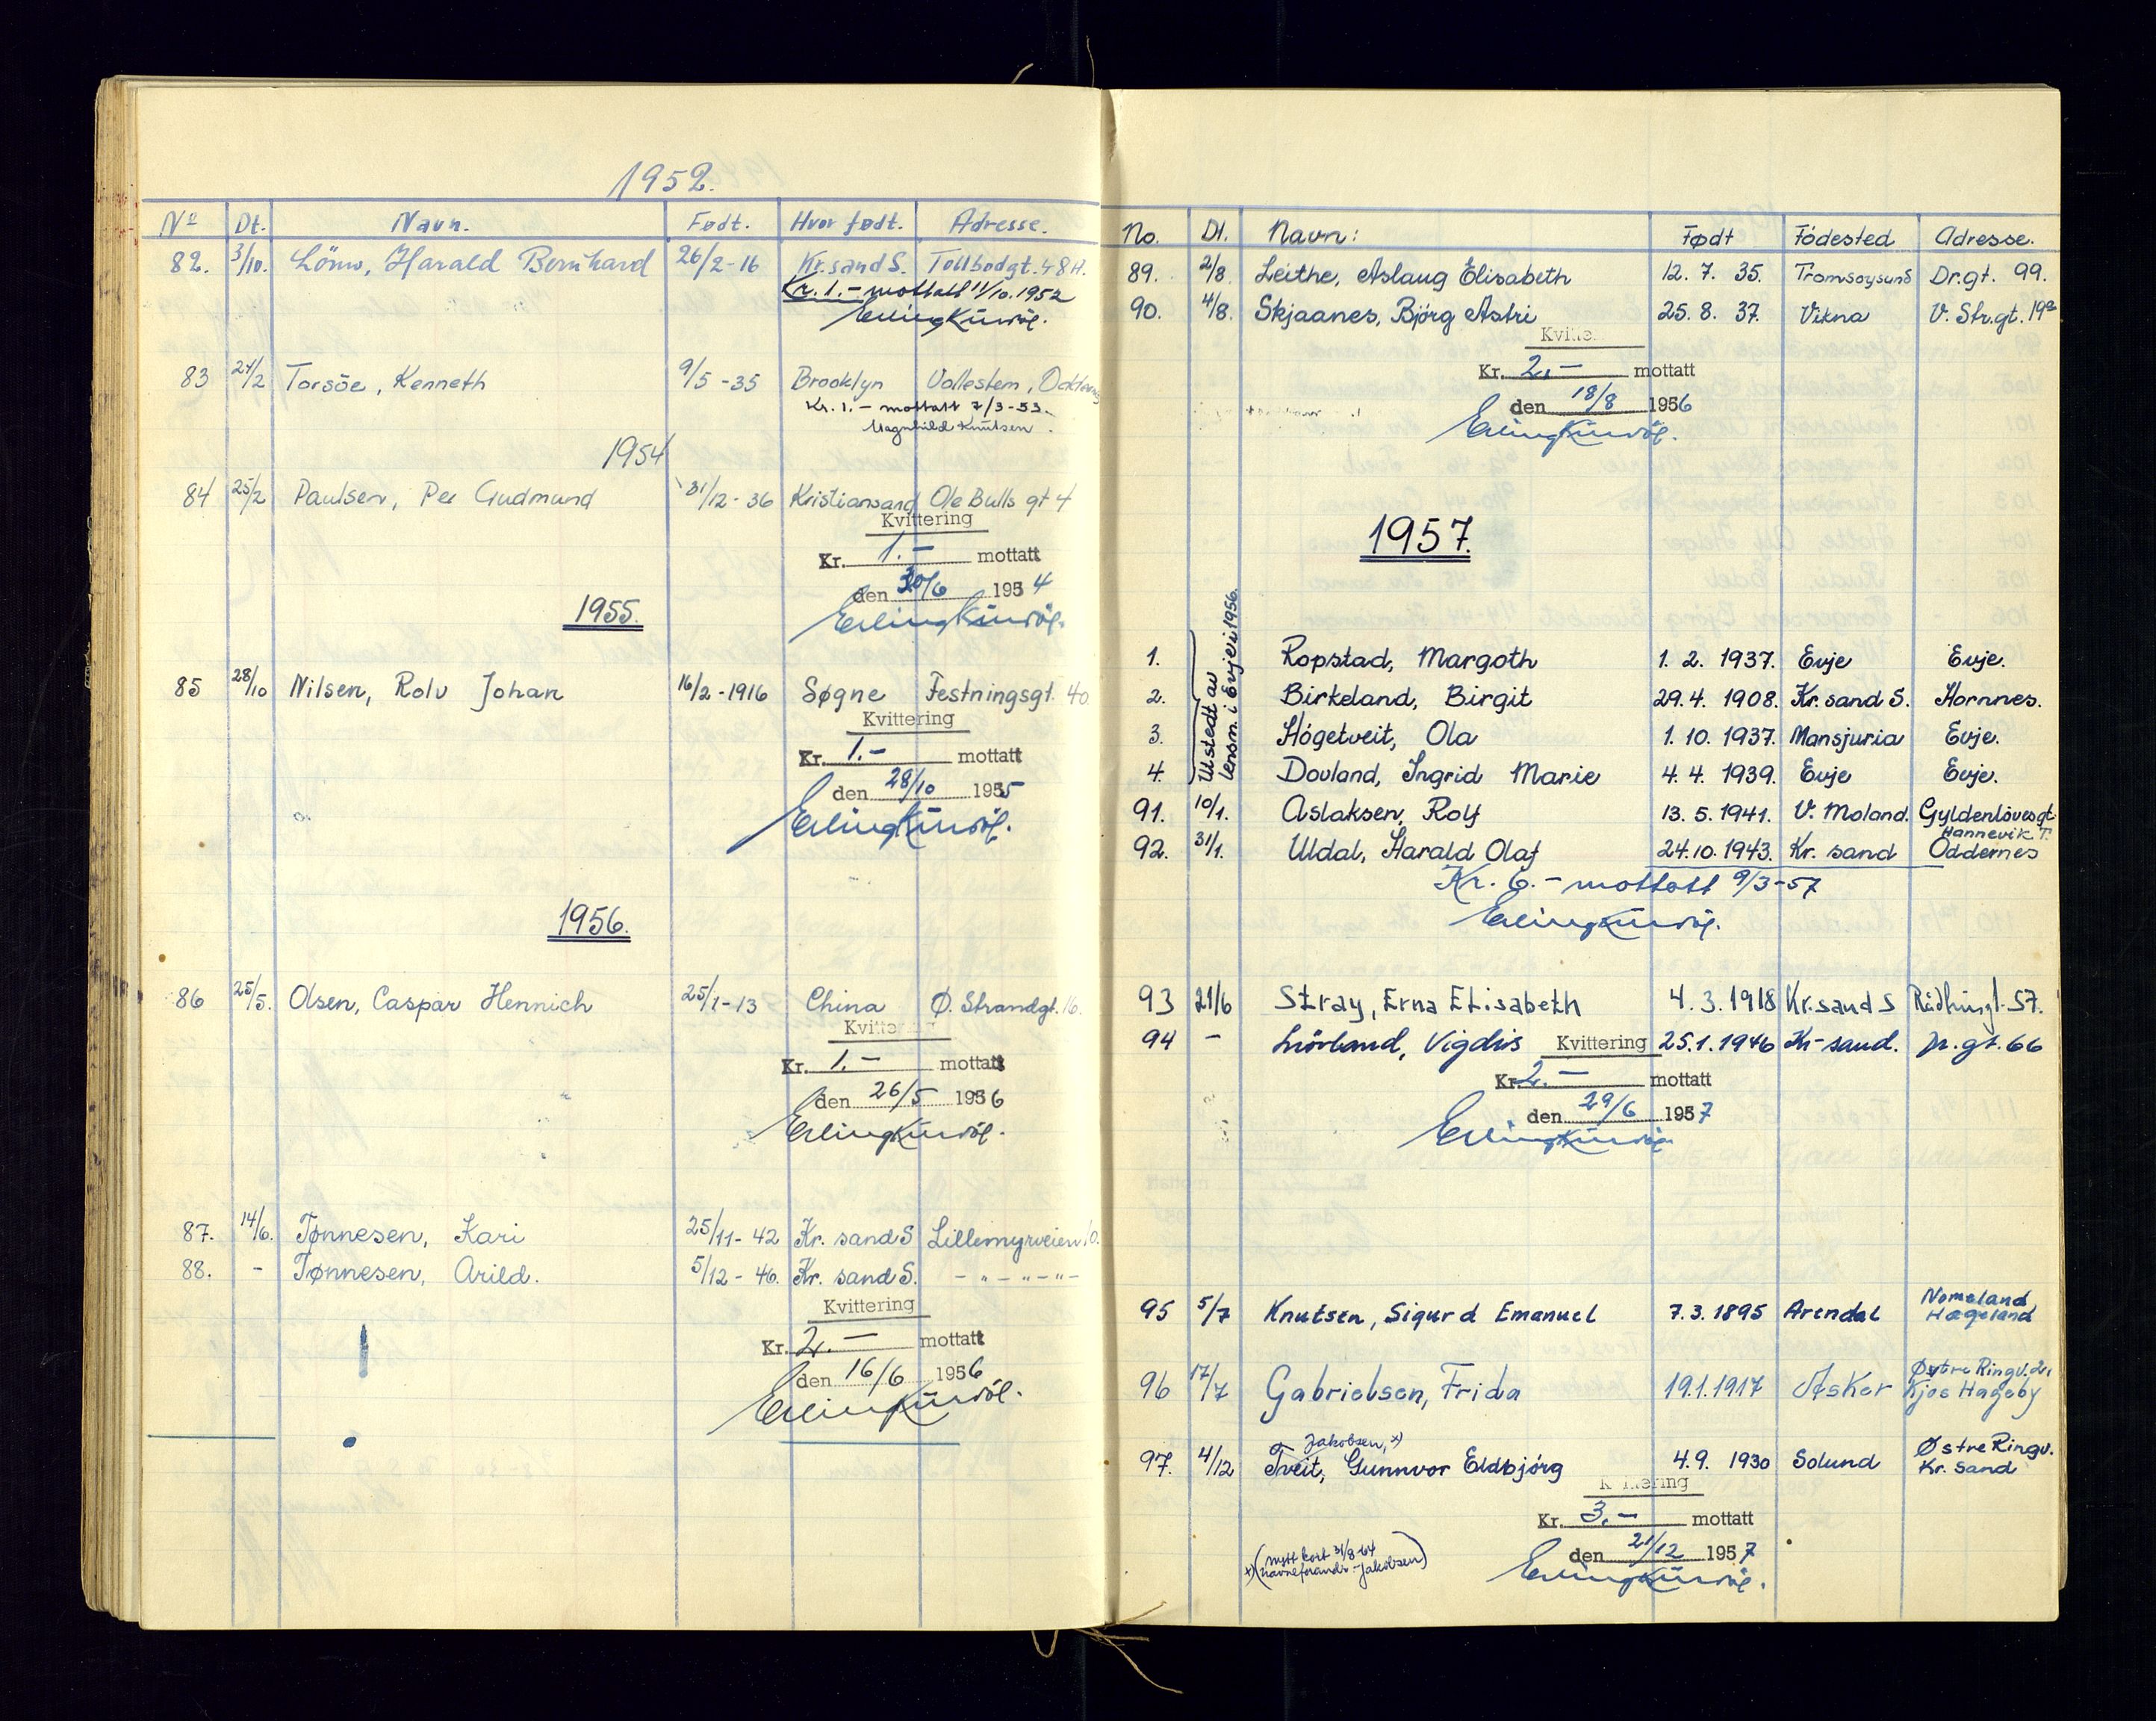 1952.
Nº Dt. Navn. Født. Hvor født. Adresse.
82. 3/10. Harald Bernhard 26/2-16 Kr.sand S. Tollbodgt. 48 H.
Kr. 1.- mottatt 11/10.1952
83 24/2 Torsöe, Kenneth 9/5-35 Brooklyn
Kr. 1.- mottatt 7/3-53.
Magnhild Knutsen
1954
84 25/2 Paulsen, Per Gudmund 31/12-36 Kristiansand Ole Bulls gt 4
Kvittering
Kr. 1.- mottatt
den 30/6 1954
1955.
85 28/10 Nilsen, Rolv Johan 16/2-1916 Søgne Festningsgt. 40
Kvittering
Kr. 1.- mottatt
den 28/10 1955
1956.
86 25/5. Olsen, Caspar Hennich 25/1-13 China Ø. Strandgt. 16.
Kvittering
Kr. 1.- mottatt
den 26/5 1956
87. 14/6. Tønnesen, Kari 25/11-42 Kr. sand S Lillemyrveien 10.
88. - Tønnesen, Arild. 5/12-46. Kr. sand S. - " - " - " -
Kvittering
Kr. 2.- mottatt
den 16/6 1956
No. Dt. Navn: Født Födested Adresse.
89. 2/8 Leithe, Aslaug Elisabeth 12. 7. 35. Tromsoysund Dr.gt. 99.
90. 4/8. Skjaanes, Björg Astri 25. 8. 37. Vikna V. Str.gt. 19a
Kvitte
Kr. 2.- mottatt
den 18/8 1956
1957.
Utstedt av
lensm. i Evje i 1956.
1. Ropstad, Margoth 1. 2. 1937. Evje Evje.
2. Birkeland, Birgit 29.4. 1908. Kr.sand S. Hornnes.
3. Högetveit, Ola 1. 10. 1937. Mansjuria Evje.
4. Dovland, Ingrid Marie 4. 4. 1939. Evje Evje.
91. 10/1. Aslaksen, Rolf 13. 5. 1941. V. Moland. Gyldenlövesgt.
92. 31/1. Uldal, Harald Olaf 24.10.1943. Kr. sand Hannevik T.
Oddernes
Kr. 6.- mottatt 9/3-57
93 21/6 Stray, Erna Elisabeth 4. 3. 1918 Kr.sand S Rådhusgt. 57.
94 - Vigdis 25.1.1946 Kr-sand. Dr.gt. 66
Kvittering
Kr. 2.- mottatt
den 29/6 1957
95 5/7 Knutsen, Sigurd Emanuel 7.3.1895 Arendal Nomeland
Hægeland
96 17/7 Gabrielsen, Frida 19.1.1917 Asker Østre Ringv. 2,
Kjos Hageby
Jakobsen, x)
97. 4/12 Tveit, Gunnvor Eldbjörg 4.9. 1930 Solund Østre Ringv.
Kr. Sand
Kvittering
Kr. 3.- mottatt
den 21/12 1957
x) (nytt kort 31/8-64
navneforandr.-Jakobsen)